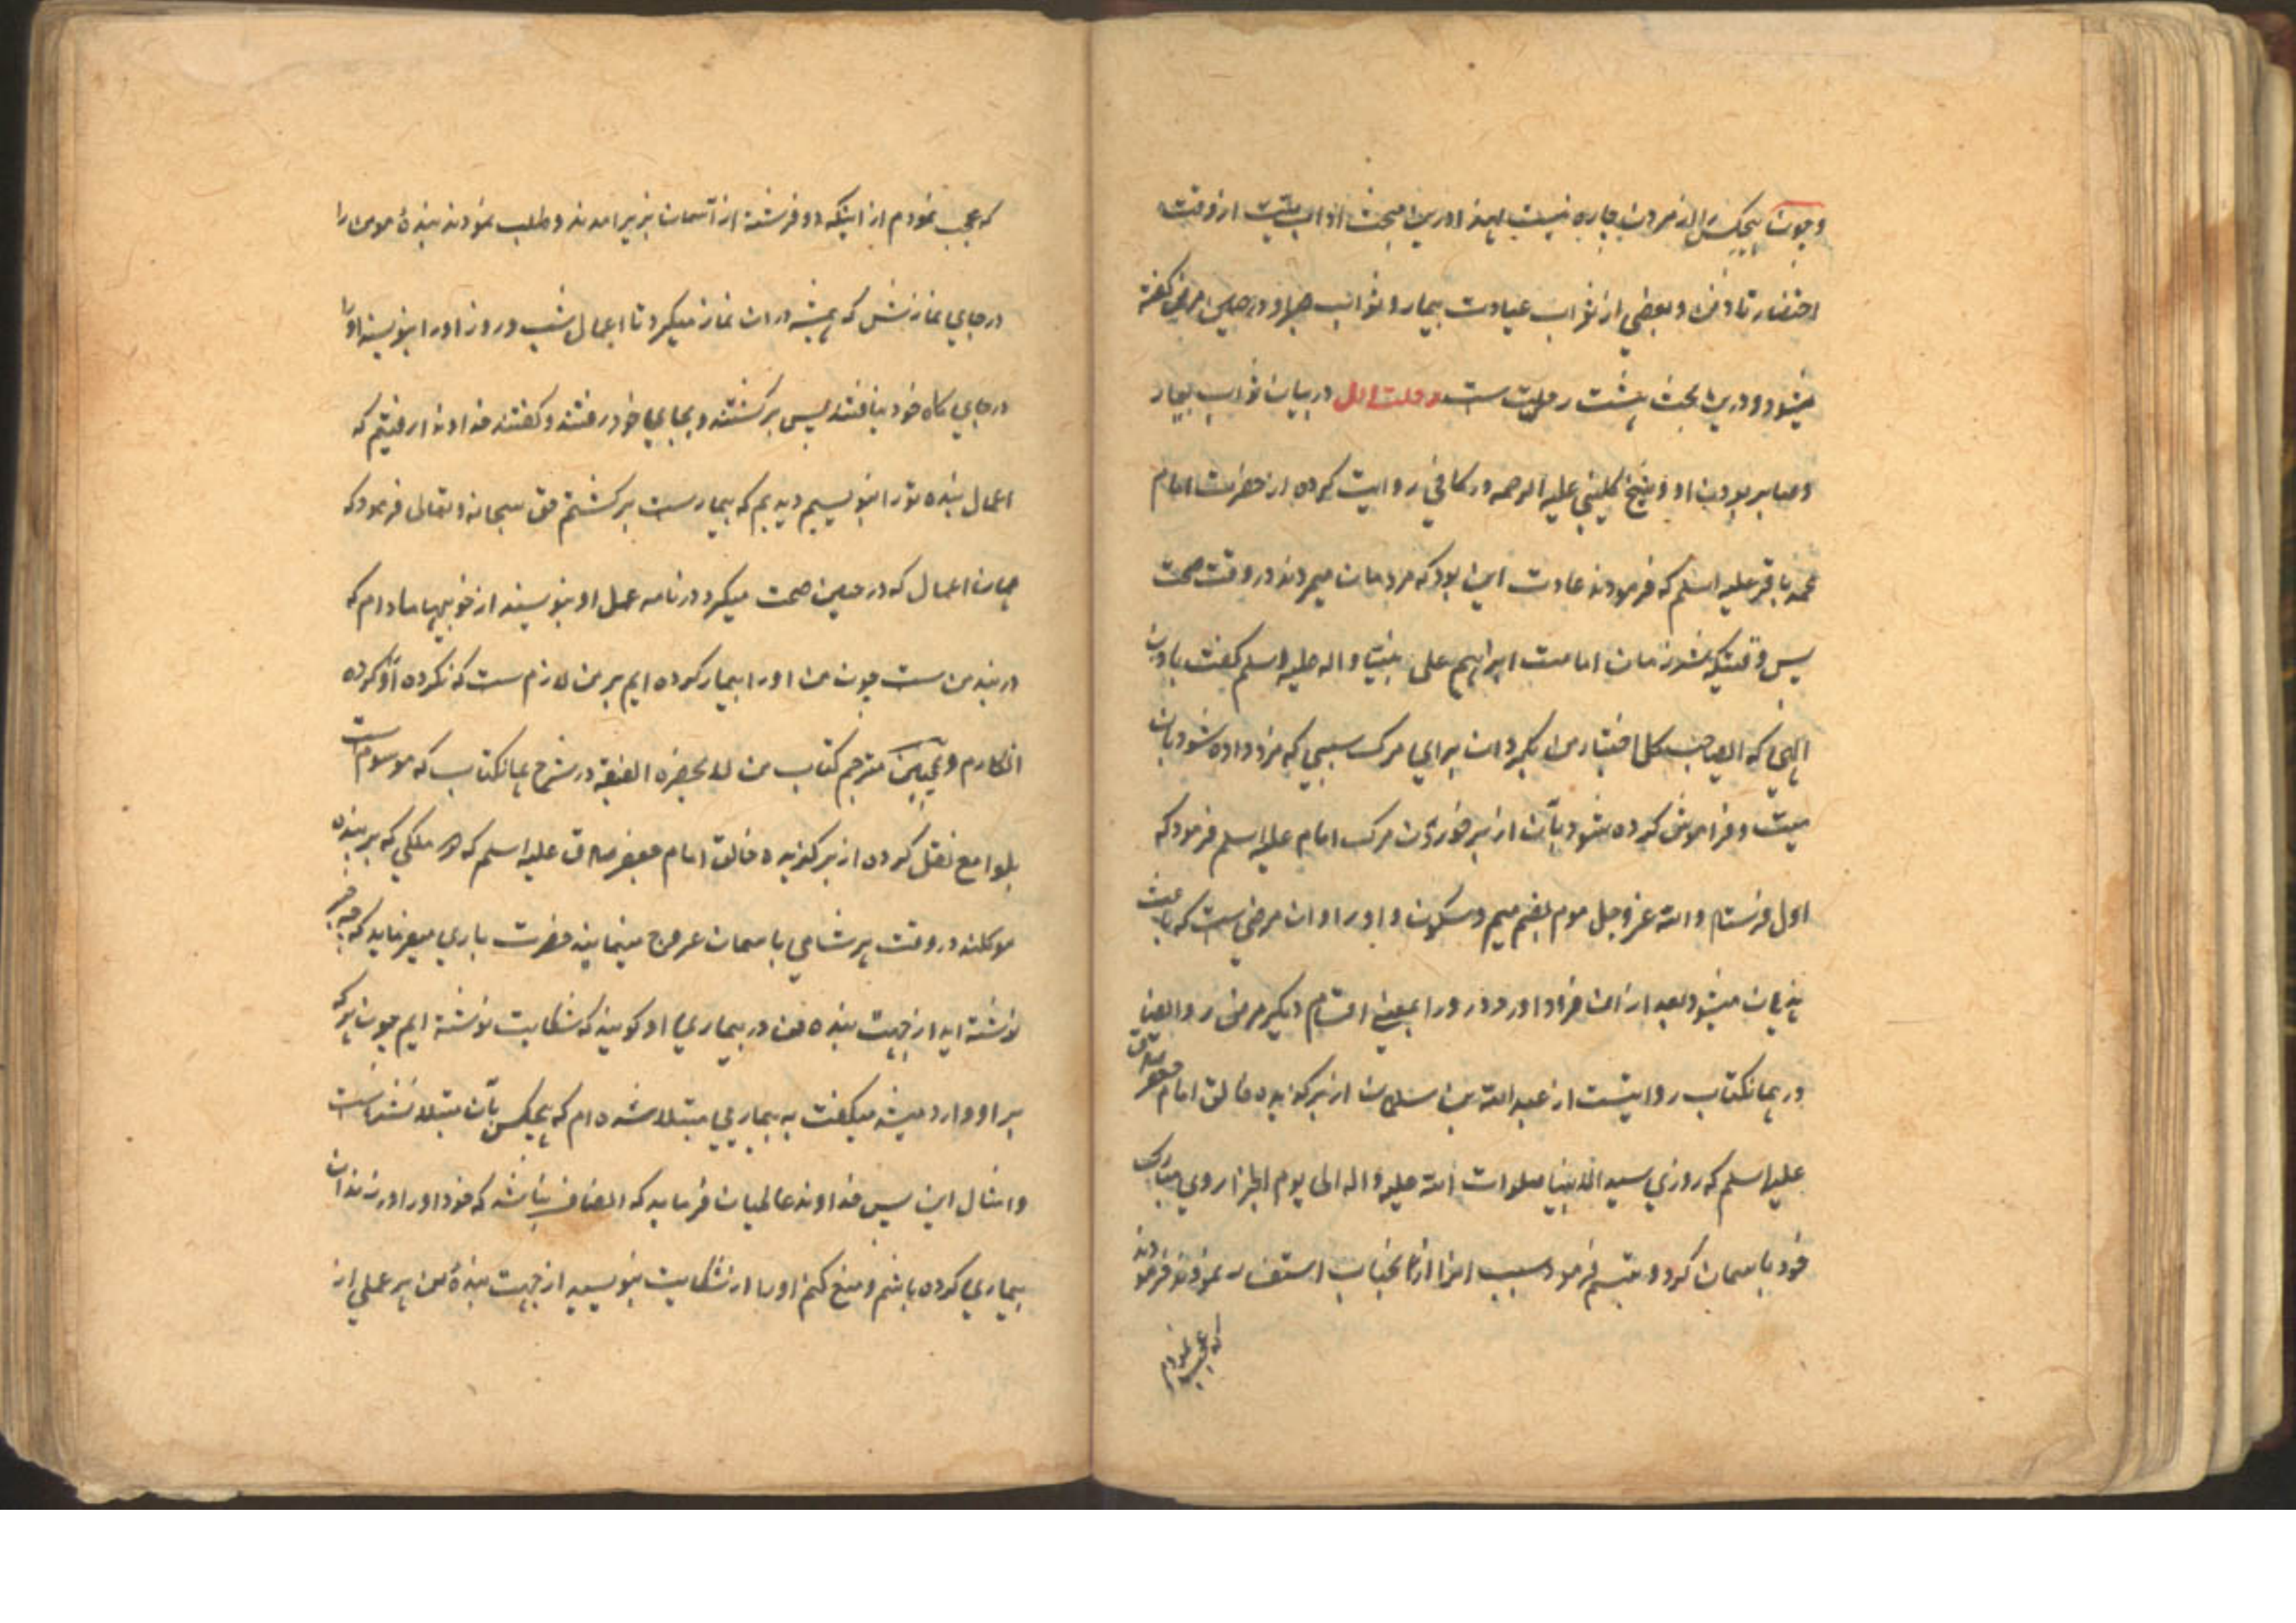 و چون هیچکس را از مردن چاره نیست لهذا درین مبحث اداب میّت از وقت
احتضار تا دفن و بعضی از ثواب عیادت بیمار و ثواب صبر او در حین مرض گفته
میشود و درین بحث هشت رحلت ست رحلت اول در بیان ثواب بیمار
و صابر بودن او شیخ کلینی علیه الرحمه در کافی روایت کرده از حضرت امام
محمد باقر علیه السلم که فرمودند عادت این بود که مردمان میمردند در وقت صحت
پس وقتیکه شد زمان امامت ابراهیم علی نبینا و اله علیه السلم گفت یا رب
الهی که اختیار من بگردان برای مرک سببی که مزد داده شود بان
میت و فراموش کرده شود بآن از برخوردن مرک امام علیه السلم فرمود که
اول فرستاد الله عز و جل موم بضم میم و سکون واو را و ان مرضی ست که باعث
هذیان میشود بعد از ان فرستاد درد را یعنی اقسام دیگر مرض را و ایضا
در همانکتاب روایتست از عبد الله بن سنان از برگزیده خالق امام جعفر صادق
علیه السلم که روزی سید الانبیا صلوات الله علیه و اله الی یوم الجزا روی مبارک
خود باسمان کرد و تبسم فرمود سبب انرا از انجناب استفسار نمودند فرمودند
که عجب نمودم
که عجب نمودم از اینکه دو فرشته از آسمان بزیر امدند و طلب نمودند بندۀ مومن را
در جای نمازش که همیشه در ان نماز میکرد تا اعمال شب و روز او را بنویسند او را
در جای گاه خود نیافتند پس برگشتند و بجای خود رفتند و گفتند خداوندا رفتیم که
اعمال بنده تو را بنویسیم دیدیم که بیمارست برگشتیم حق سبحانه و تعالی فرمود که
همان اعمال که در حین صحت میکرد در نامه عمل او بنویسند از خوبیها مادام که
در بند من ست چون من او را بیمار کرده ایم بر من لازم ست که نکرده او را کرده
انکارم و همچنین مترجم کتاب من لا یحضره الفقیه در شرح همانکتاب که موسوم است
بلوامع نقل کرده از برگزیده خالق امام جعفر صادق علیه السلم که هر ملکی که بر بنده
موکلند در وقت هر شامی باسمان عروج مینمایند حضرت باری میفرماید که چه چیز
نوشته اید از جهت بنده من در بیماری او گویند که شکایت نوشته ایم چون هر که
بر او وارد میشد میگفت به بیماریی مبتلا شده ام که هیچکس بآن مبتلا نشده است
و امثال این پس خداوند عالمیان فرماید که انصاف نباشد که خود او را در زندان
بیماری کرده باشم و منع کنم او را از شکایت بنویسید از جهت بندۀ من هر عملی از